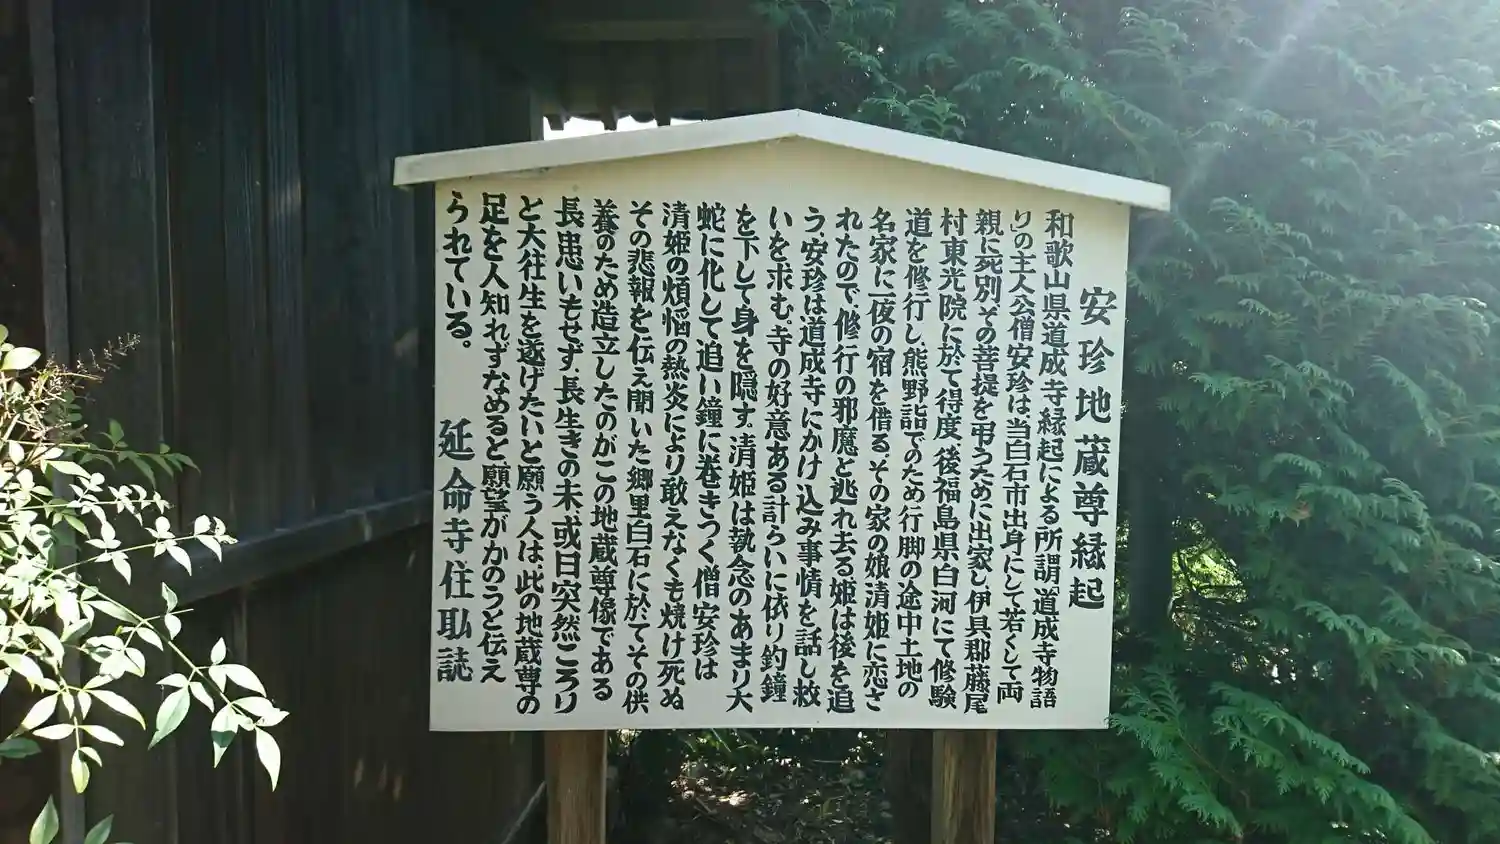 安珍地蔵尊縁起
和歌山県道成寺縁起による所謂「道成寺物語
り」の主人公僧安珍は、当白石市出身にして若くして両
親に死別、その菩提を弔うために出家し伊具郡藤尾
村東光院に於て得度、後福島県白河にて修験
道を修行し、熊野詣でのため行脚の途中土地の
名家に一夜の宿を借る。その家の娘清姫に恋さ
れたので、修行の邪魔と逃れ去る姫は後を追
う、安珍は道成寺にかけ込み事情を話し救
いを求む。寺の好意ある計らいに依り釣鐘
を下して身を隠す。清姫は執念のあまり大
蛇に化して追い鐘に巻きつく僧安珍は
清姫の煩悩の熱炎により敢えなくも焼け死ぬ
その悲報を伝え聞いた郷里白石に於てその供
養のため造立したのがこの地蔵尊像である
長患いもせず、長生きの末或日突然ころり
と大往生を遂げたいと願う人は、此の地蔵尊の
足を人知れずなめると、願望がかのうと伝え
られている。
延命寺住職 誌